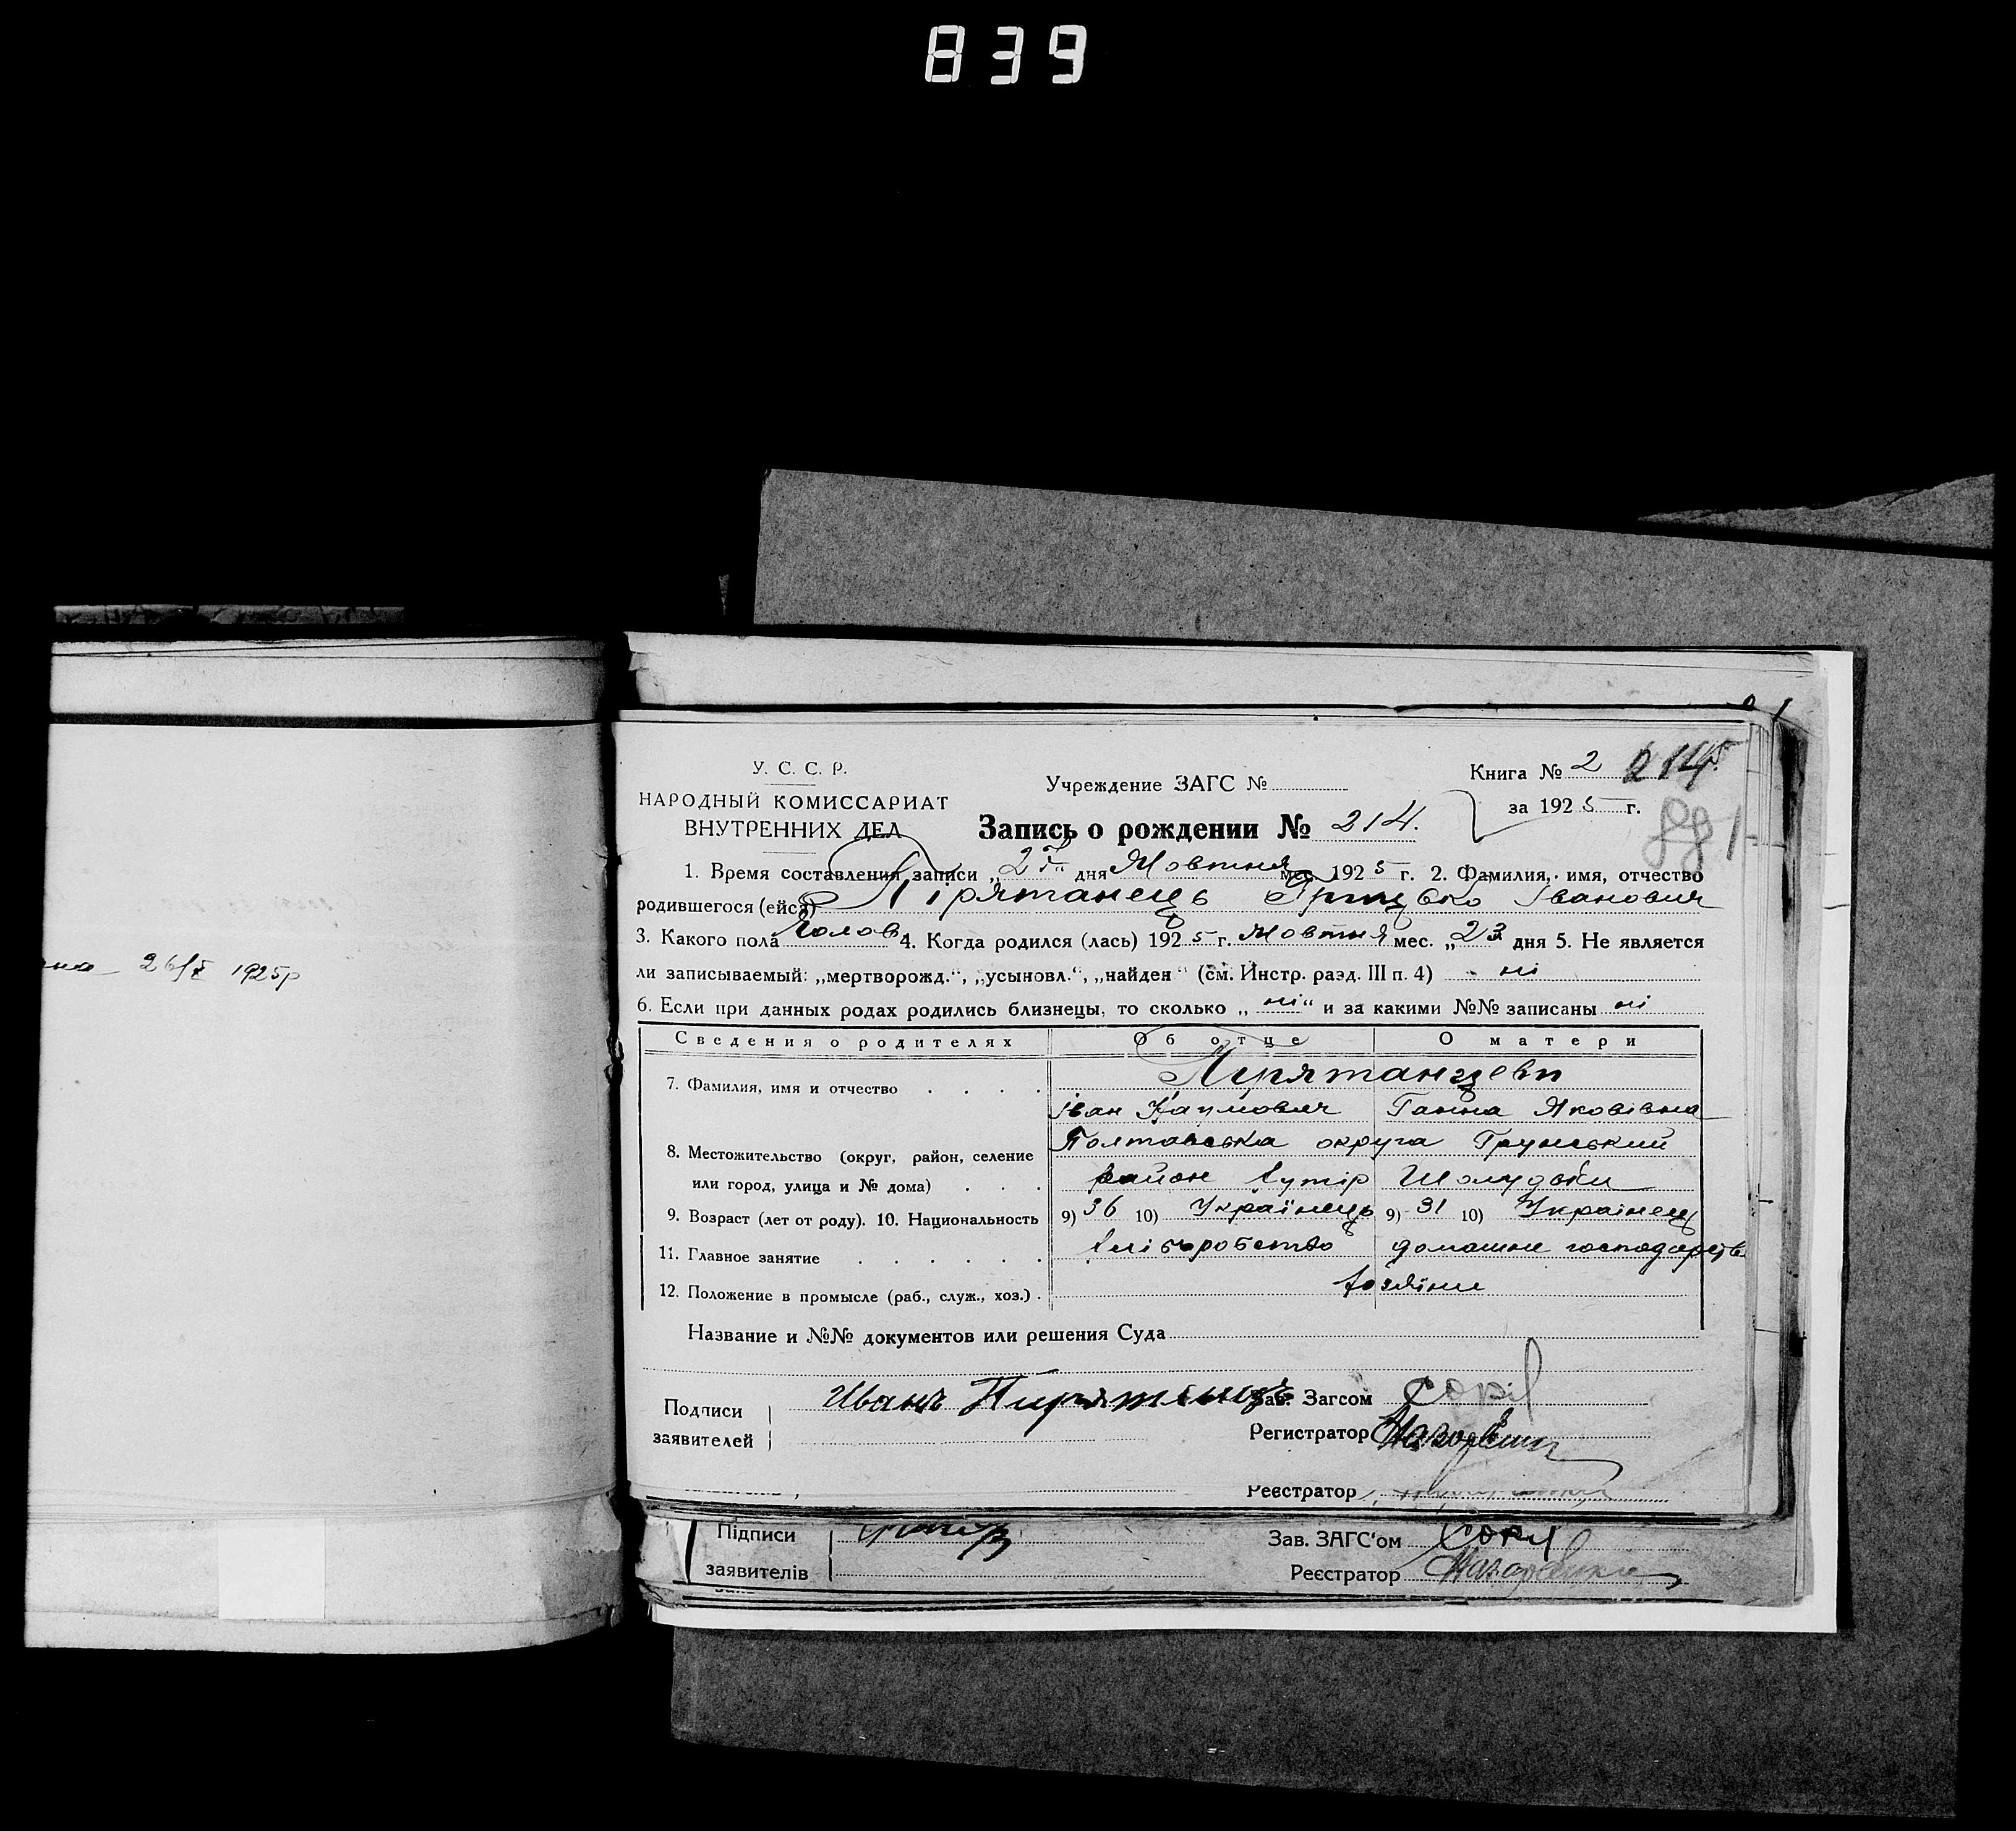 839
на 26/X 1925р
У. С. С. Р.
НАРОДНЫЙ КОМИССАРИАТ
ВНУТРЕННИХ ДЕЛ
Учреждение ЗАГС №
Запись о рождении № 214.
Книга № 2 214
за 1925 г.
1. Время составления записи „27“ дня Жовтня мес. 1925 г. 2. Фамилия, имя, отчество
родившегося (ейся) Пірятанець Грицько Іванович
3. Какого пола Чолов. 4. Когда родился (лась) 1925 г. Жовтня мес. „23 дня 5. Не является
ли записываемый: „мертворожд.“, „усыновл.“, „найден“ (см. Инстр. разд. III п. 4) ні
6. Если при данных родах родились близнецы, то сколько „ні“ и за какими №№ записаны ні
Сведения о родителях Об отце О матери
7. Фамилия, имя и отчество Пирятанцеви
Іван Наумович Ганна Яковівна
8. Местожительство (округ, район, селение Полтавська округа Грунський
или город, улица и № дома) район хутір Шолудьки
9. Возраст (лет от роду). 10. Национальность 9) 36 10) Українець 9) 31 10) Українець
11. Главное занятие хліборобство домашнє господарств
12. Положение в промысле (раб., служ., хоз.) хозяїни
Название и №№ документов или решения Суда
Подписи
заявителей
Иванъ Пирятинецъ
Зав. Загсом Сокіл
Регистратор
Реєстратор
Підписи
заявителів
Зав. ЗАГС'ом Сокіл
Реєстратор